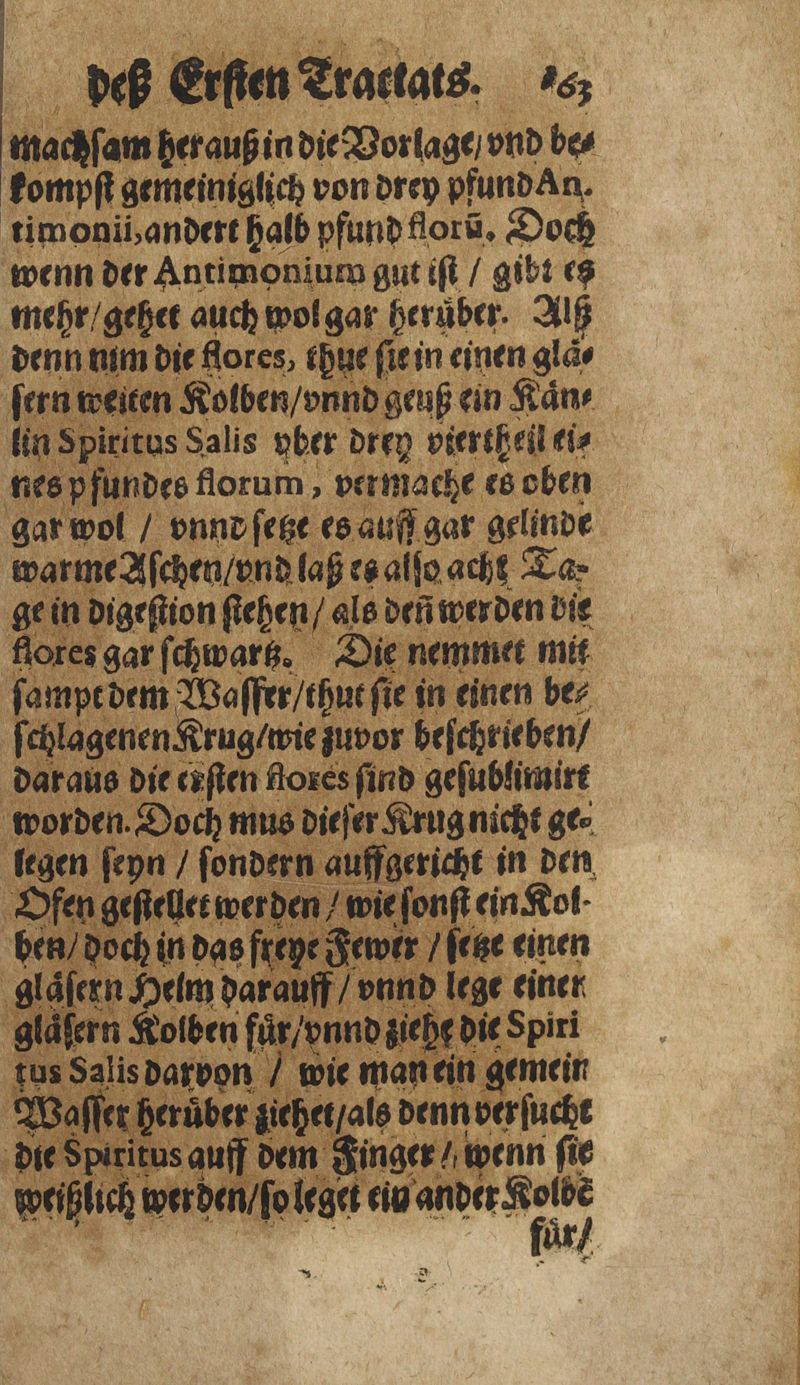 deß Ersten Tractats. 163
machsam herauß in die Vorlage/ vnd be⸗
kompst gemeiniglich von drey pfund An⸗
timonii, andert halb pfund florū. Doch
wenn der Antimonium gut ist / gibt es
mehr/ gehet auch wol gar herüber. Alß
denn nim die flores, thue sie in einen glä⸗
sern weiten Kolben/ vnnd geuß ein Kän⸗
lin Spiritus Salis vber drey viertheil ei⸗
nes pfundes florum, vermache es oben
gar wol / vnnd setze es auff gar gelinde
warme Aschen/ vnd laß es also acht Ta⸗
ge in digestion stehen/ als deñ werden die
flores gar schwartz. Die nemmet mit
sampt dem Wasser/ thut sie in einen be⸗
schlagenen Krug/ wie zuvor beschrieben/
daraus die ersten flores sind gesublimirt
worden. Doch mus dieser Krug nicht ge⸗
legen seyn / sondern auffgericht in den
Ofen gestellet werden / wie sonst ein Kol⸗
ben/ doch in das freye Fewer / setze einen
gläsern Helm darauff / vnnd lege einen
gläsern Kolben für/ vnnd ziehe die Spiri
tus Salis darvon / wie man ein gemein
Wasser herüber ziehet/ als denn versucht
die Spiritus auff dem Finger / wenn sie
weißlich werden/ so leget ein ander Kolbē
für/